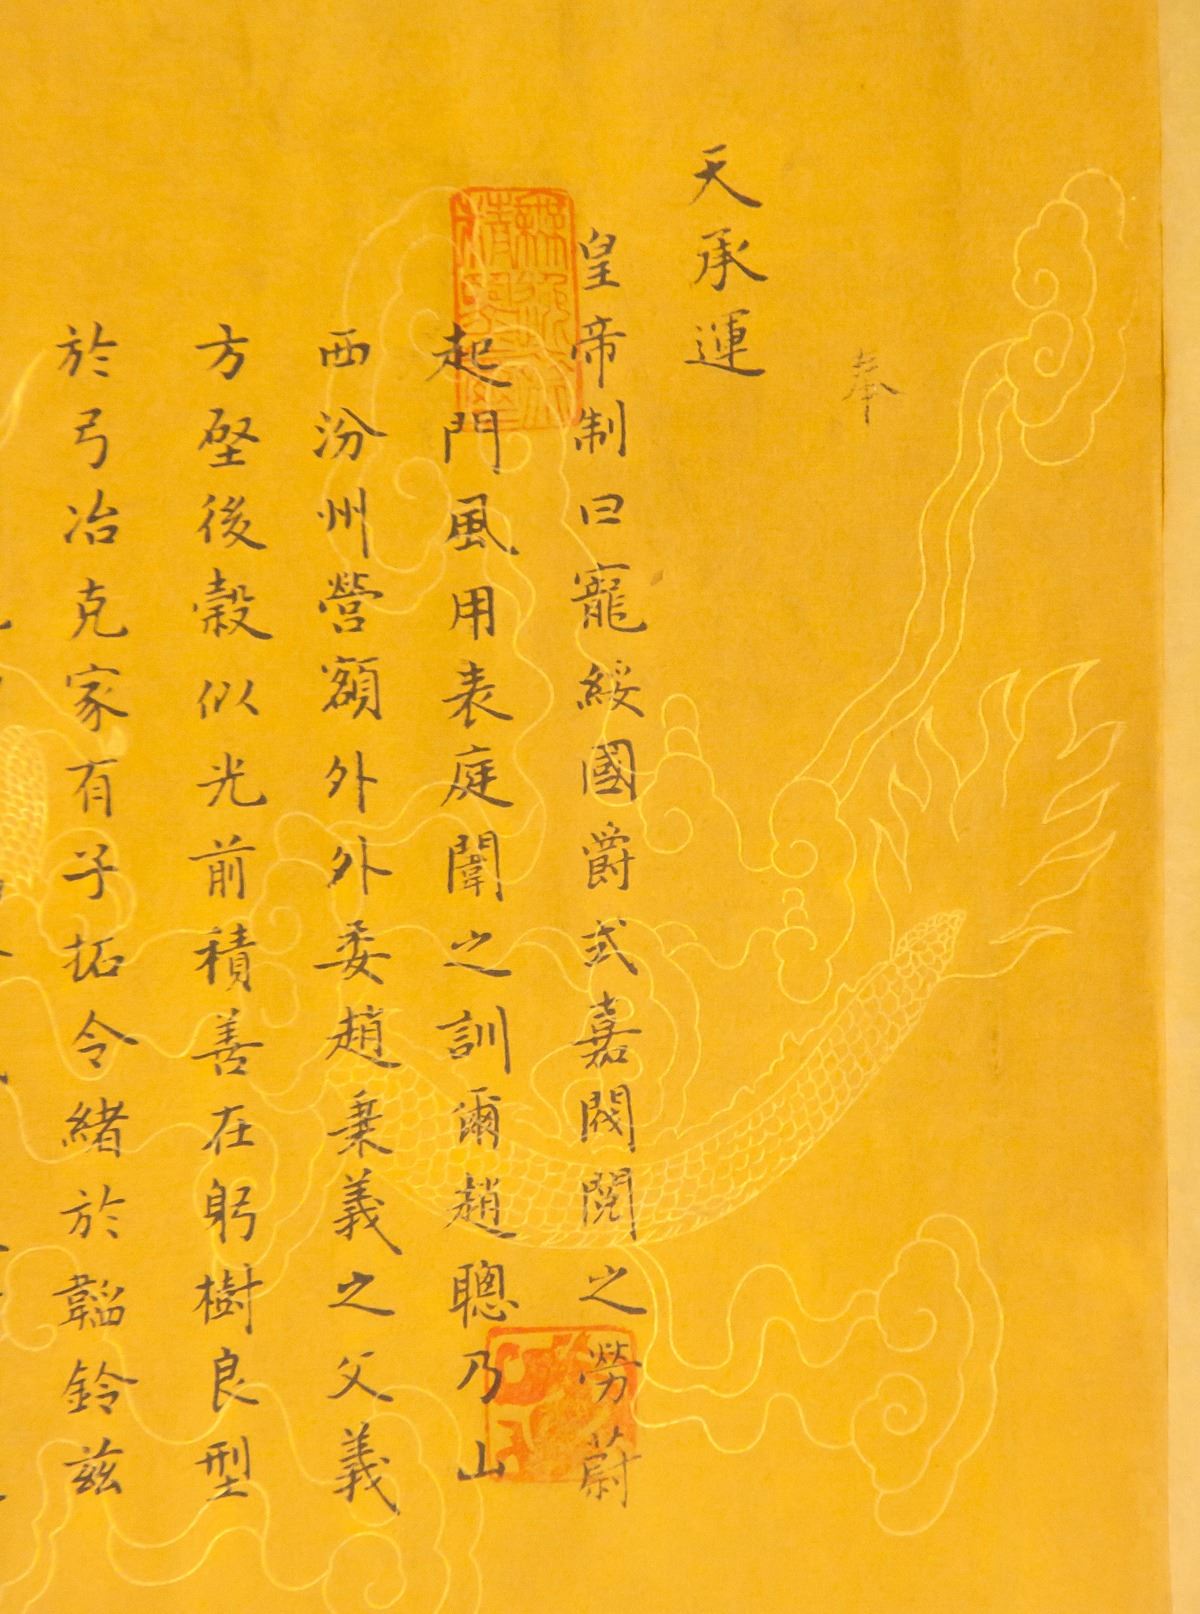 奉
天承運
皇帝制曰寵綏國爵式嘉閥閱之勞蔚
起門風用表庭闈之訓爾趙聰乃山
西汾州營額外外委趙秉義之父義
方堲後榖似光前積善在躬樹良型
於弓冶克家有子拓令緒於韜鈴兹